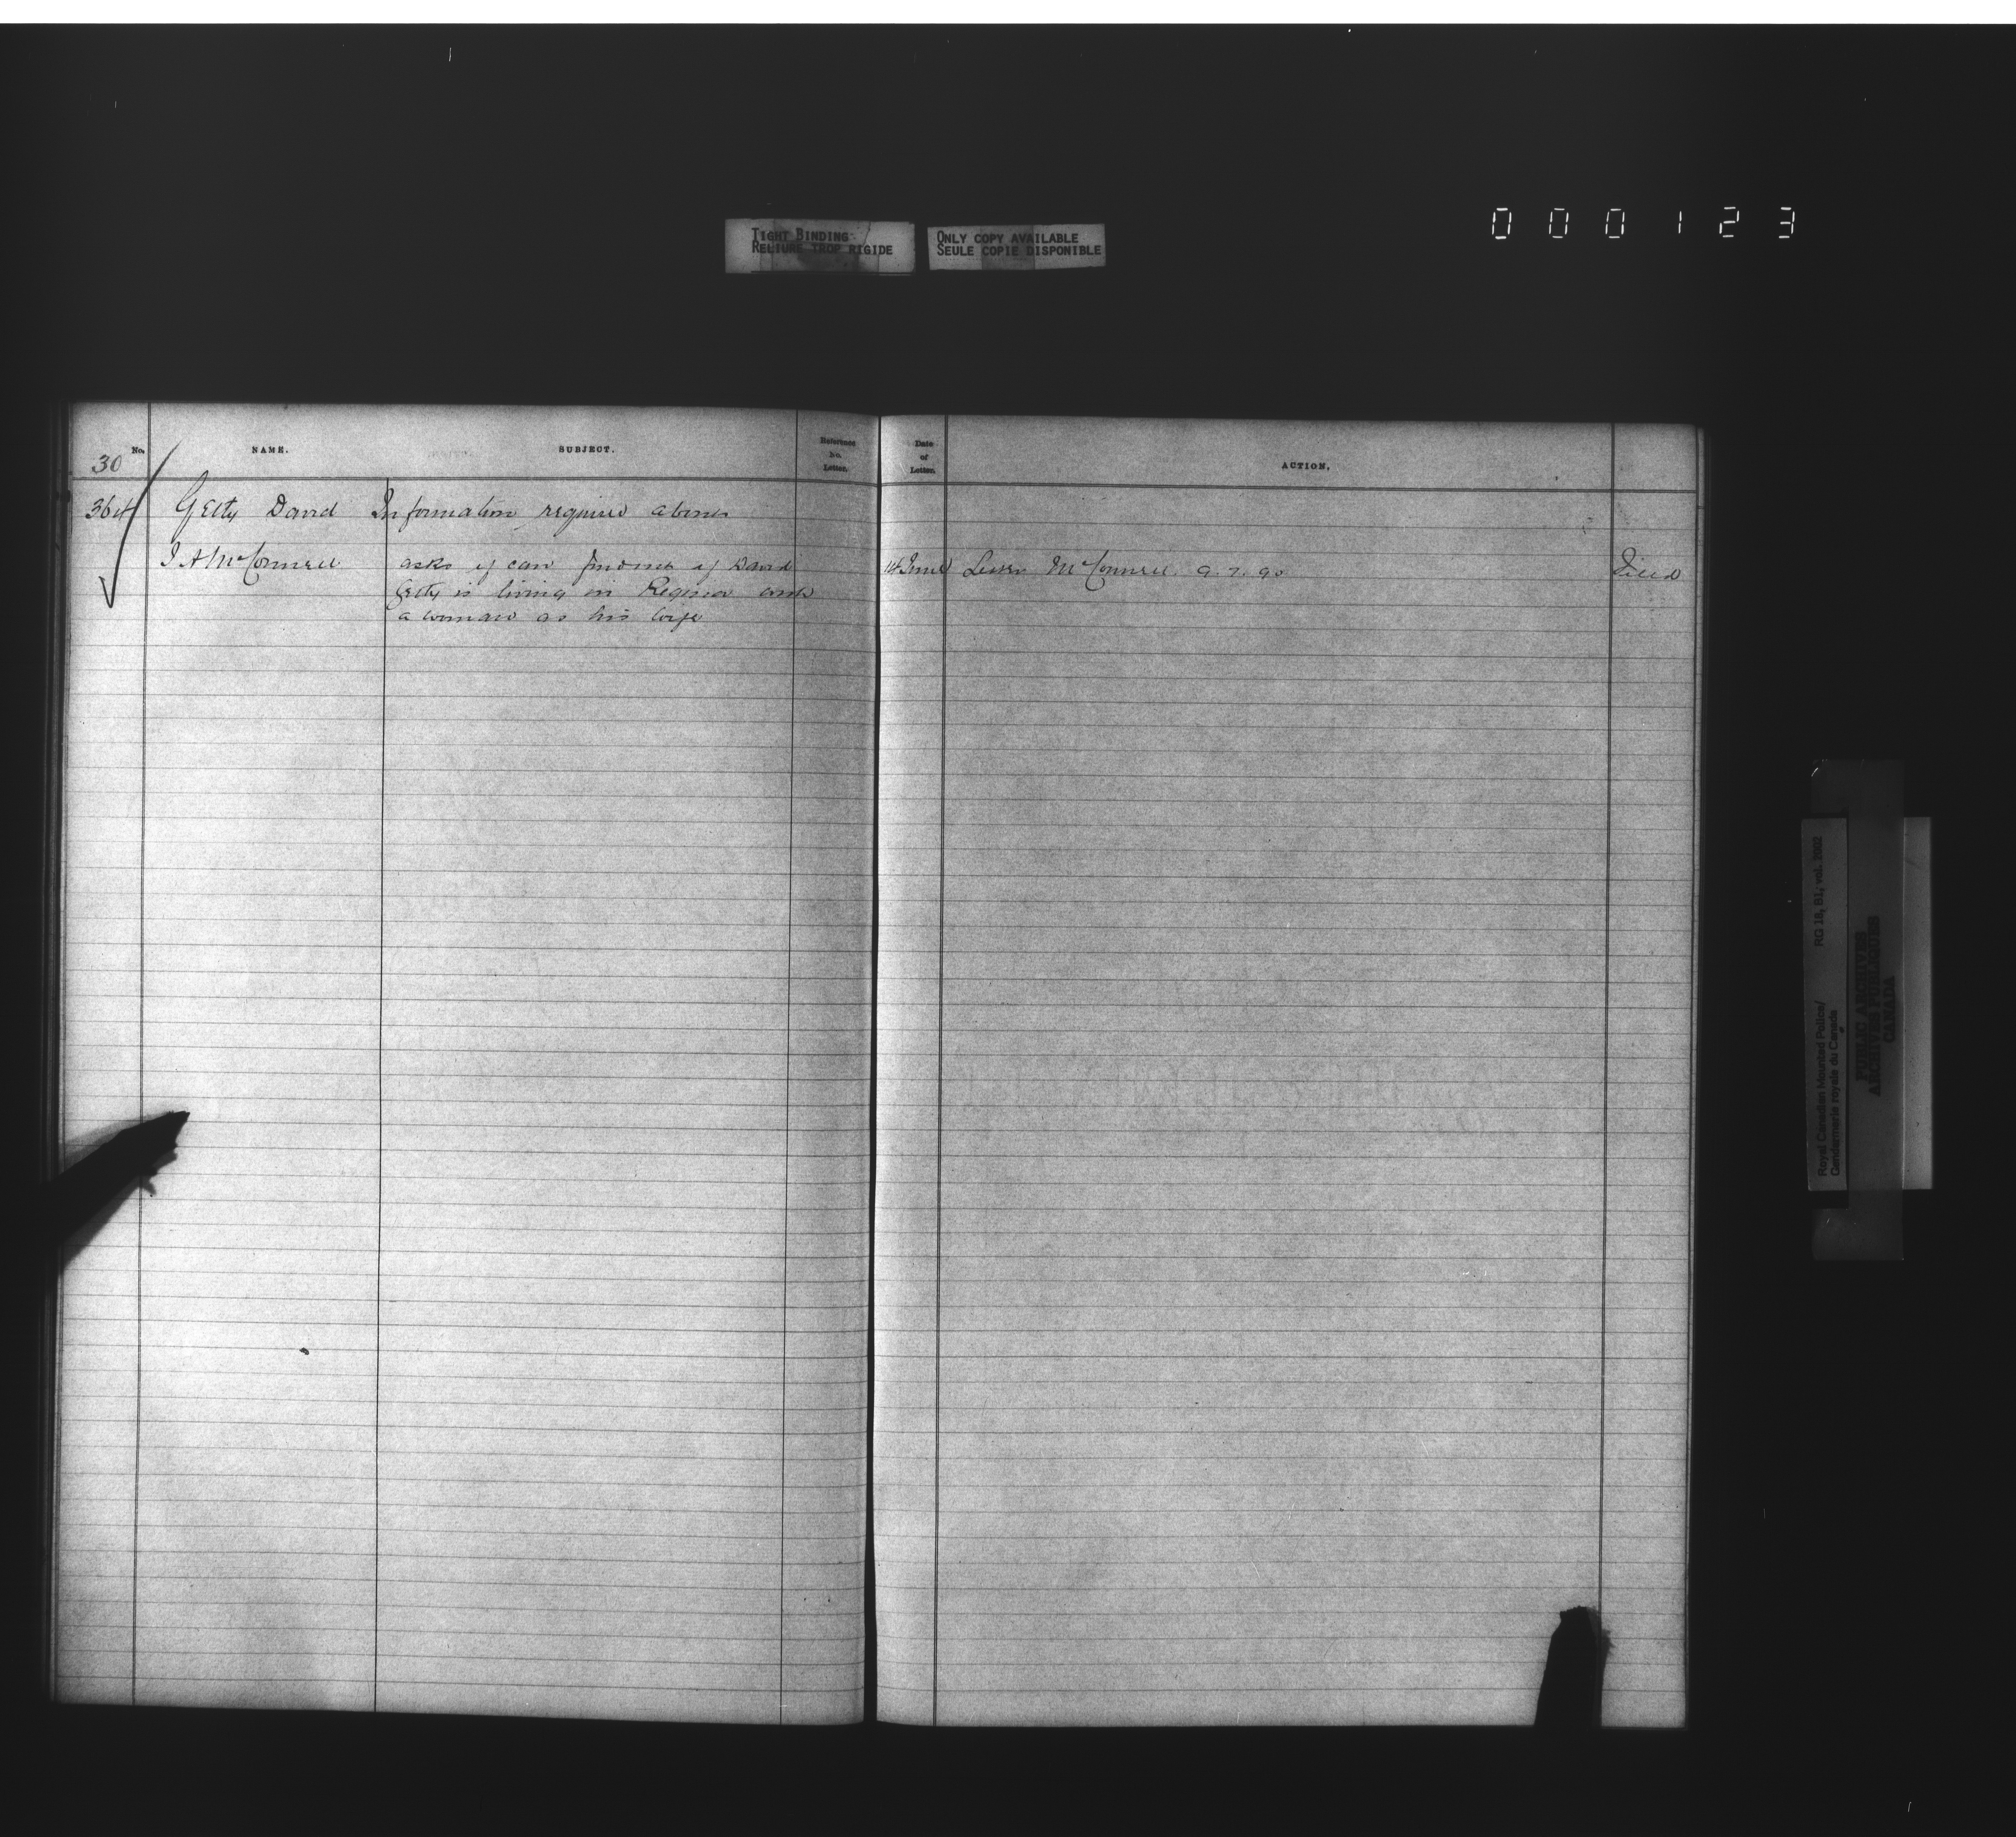 000123
TIGHT BINDING
RELIURE TROP RIGIDE
ONLY COPY AVAILABLE
SEULE COPIE DISPONIBLE
No. NAME. SUBJECT. Reference No. Letter. Date of Letter. ACTION.
30
364 Getty David Information required about
J A McConnell asks if can find out if David 14 June Letter McConnell 9.7.90 Filed
Getty is living in Regina with
a woman as his wife
Royal Canadian Mounted Police/ RG 18, B1, vol. 2002
Gendarmerie royale du Canada
PUBLIC ARCHIVES
ARCHIVES PUBLIQUES
CANADA